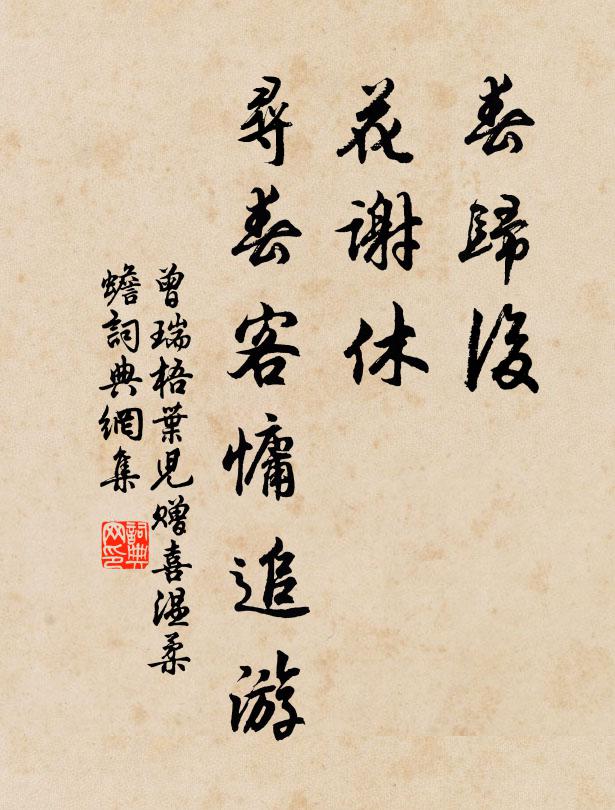 春歸後
花謝休
尋春客慵追游
曾瑞梧葉兒贈喜溫柔
蟾詞典網集
詞典網印